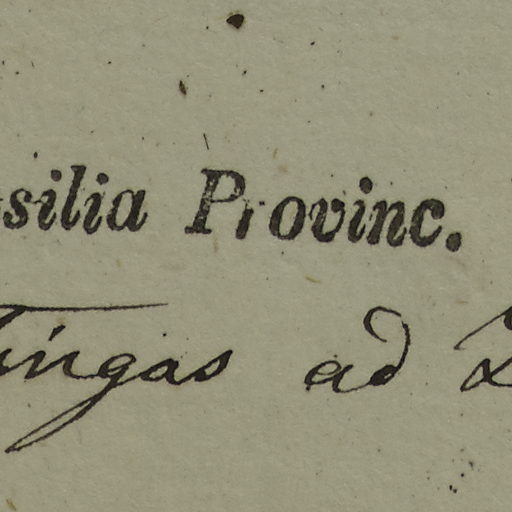 silia Provinc.
ingas ad